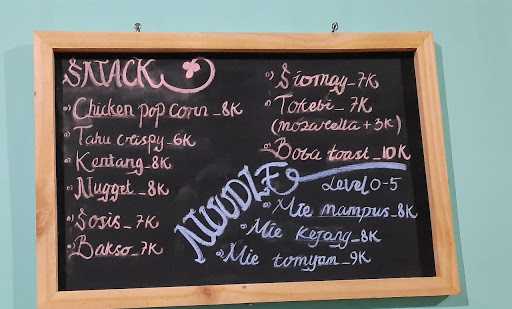 SNACK
Chicken pop corn _ 8K
Tahu crispy _ 6K
Kentang _ 8K
Nugget _ 8K
Sosis _ 7K
Bakso _ 7K
Siomay _ 7K
Tokebi _ 7K
(mozarella + 3K)
Boba toast _ 10K
NOODLE
Level 0-5
Mie mampus _ 8K
Mie Kejang _ 8K
Mie tomyam _ 9K